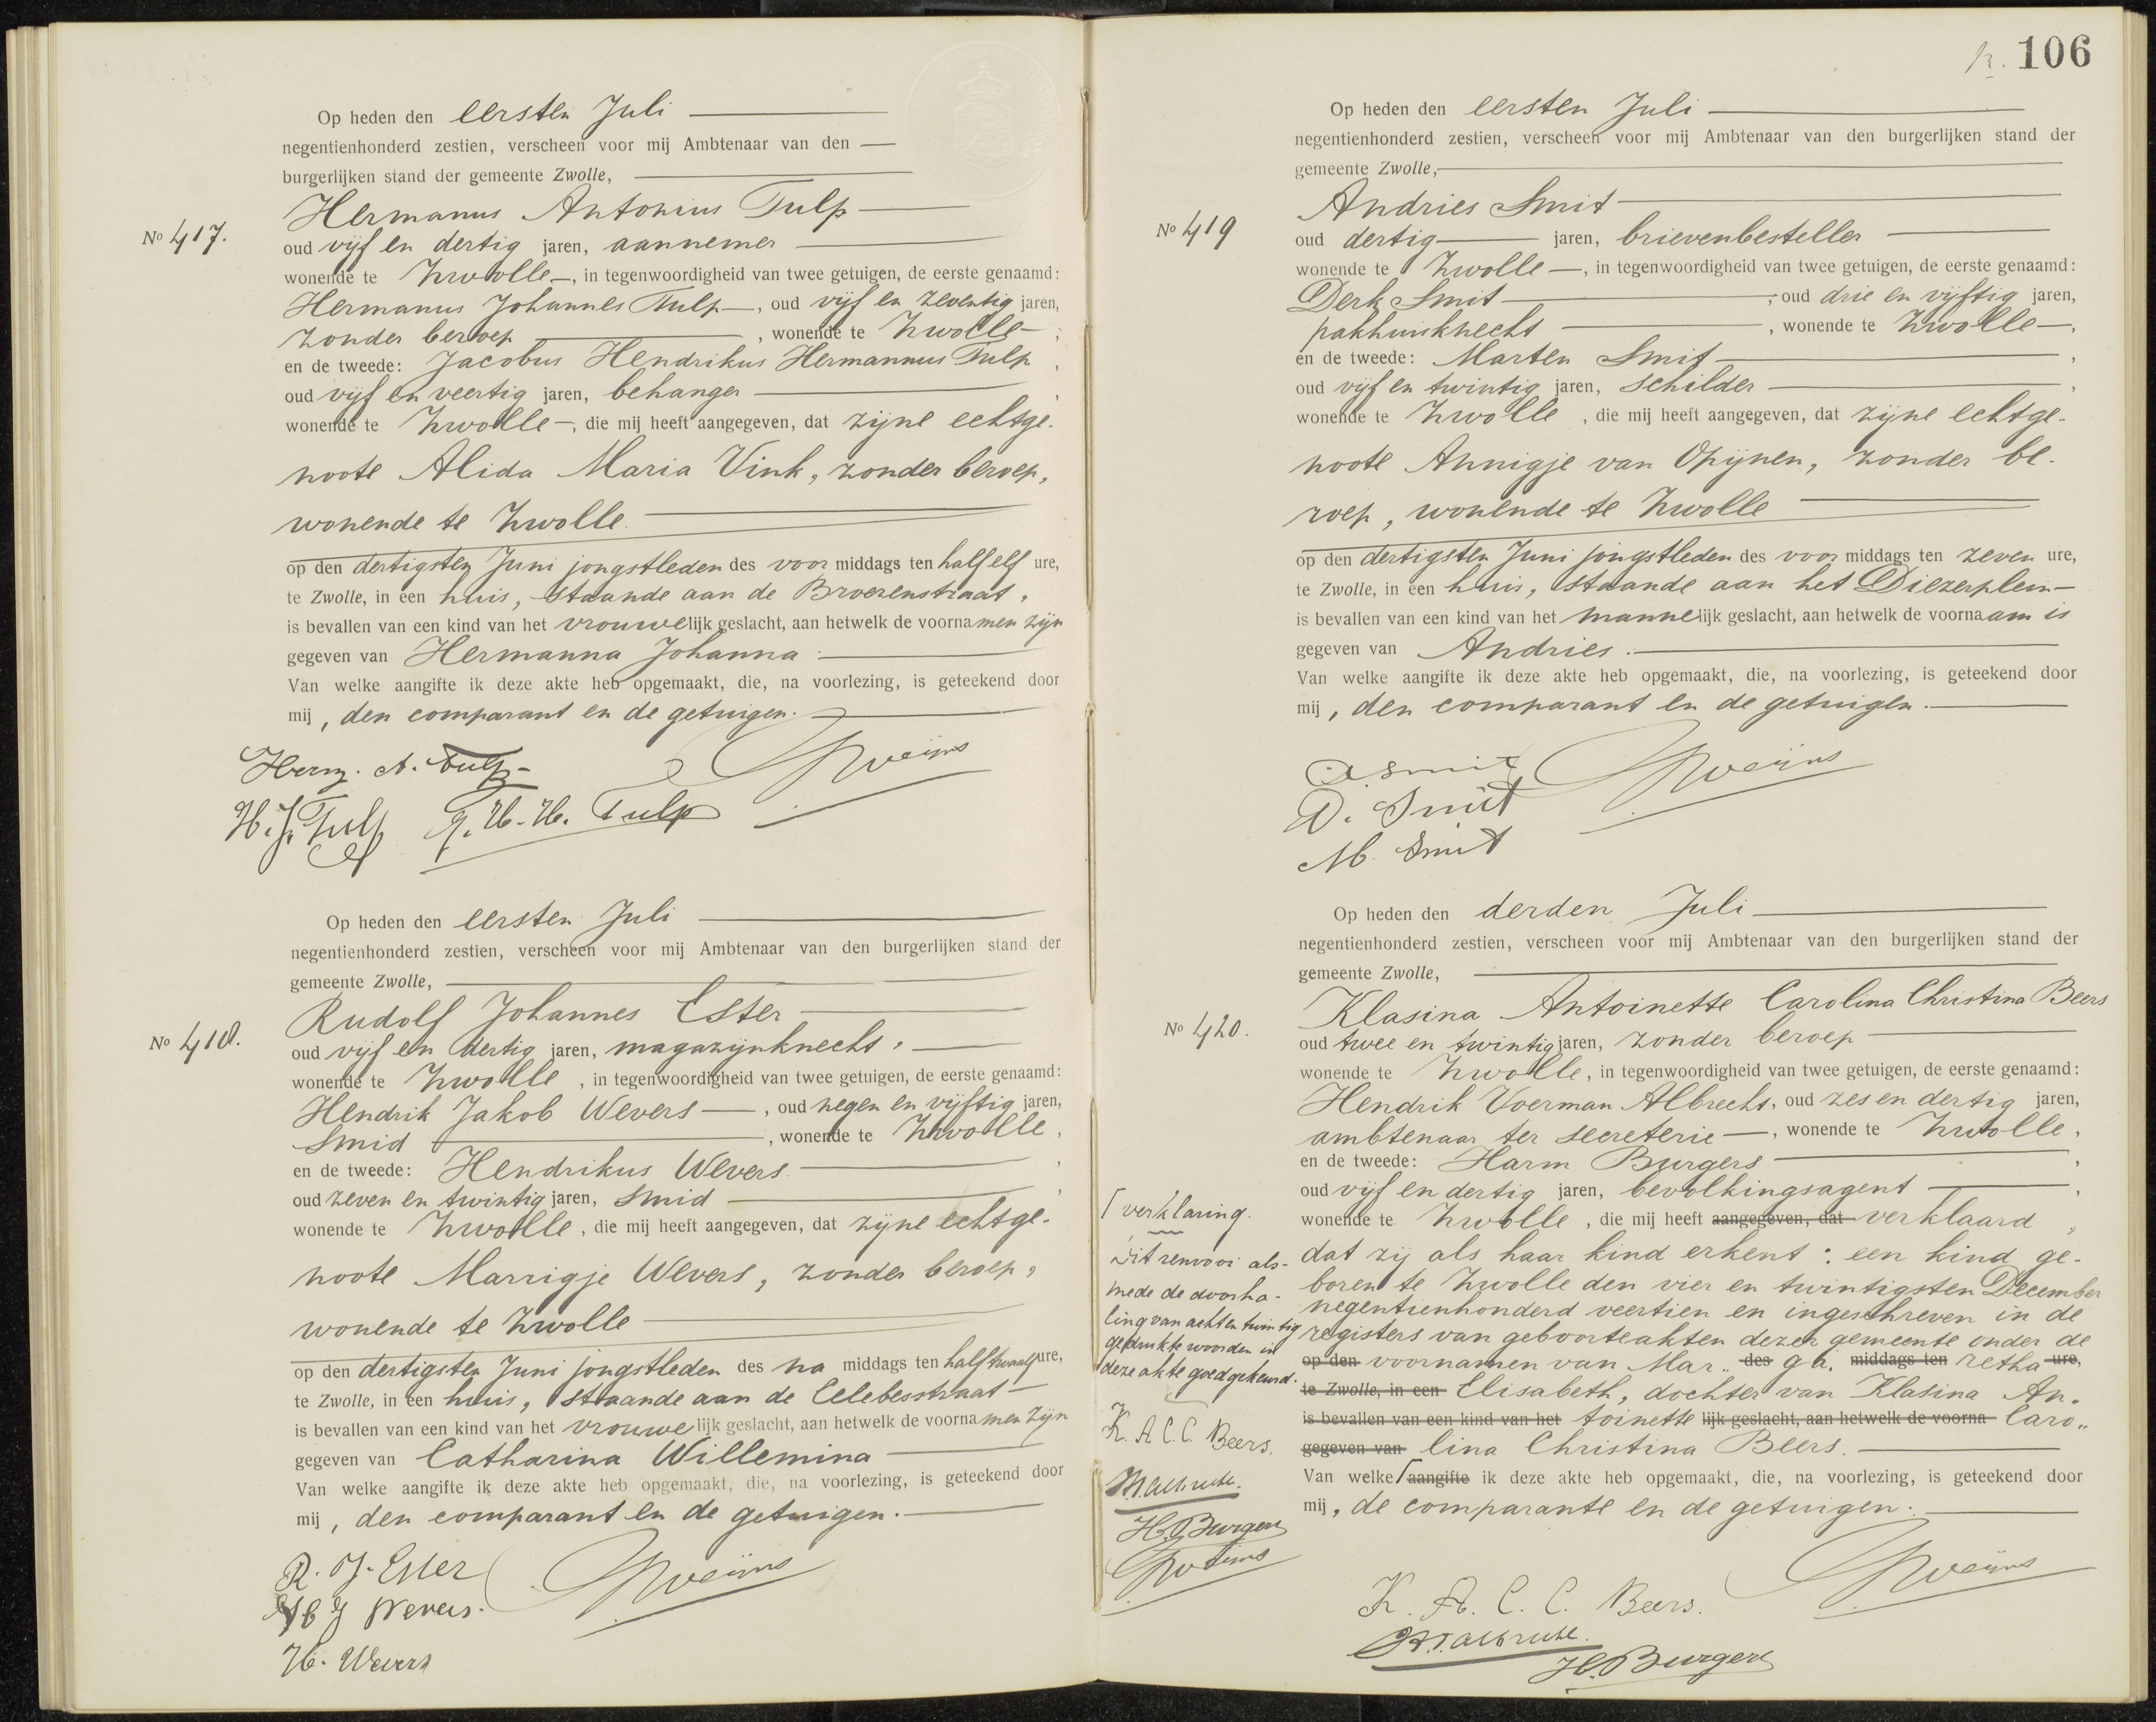 Op heden den eersten Juli
negentienhonderd zestien, verscheen voor mij Ambtenaar van den
burgerlijken stand der gemeente Zwolle,
Hermanus Antonius Tulp
No 417.
oud vijf en dertig jaren, aannemer
wonende te Zwolle, in tegenwoordigheid van twee getuigen, de eerste genaamd:
Hermanus Johannes Tulp, oud vijf en zeventig jaren,
zonder beroep, wonende te Zwolle;
en de tweede: Jacobus Hendrikus Hermannus Tulp,
oud vijf en veertig jaren, behanger,
wonende te Zwolle, die mij heeft aangegeven, dat zijne echtge-
noote Alida Maria Vink, zonder beroep,
wonende te Zwolle
op den dertigsten Juni jongstleden des voor middags ten half elf ure,
te Zwolle, in een huis, staande aan de Broerenstraat,
is bevallen van een kind van het vrouwelijk geslacht, aan hetwelk de voornamen zijn
gegeven van Hermanna Johanna.
Van welke aangifte ik deze akte heb opgemaakt, die, na voorlezing, is geteekend door
mij, den comparant en de getuigen.
Herm. A. Tulp
H. J. Tulp J. H. H. Tulp
Op heden den eersten Juli
negentienhonderd zestien, verscheen voor mij Ambtenaar van den burgerlijken stand der
gemeente Zwolle,
Rudolf Johannes Ester
No 418.
oud vijf en dertig jaren, magazijnknecht,
wonende te Zwolle, in tegenwoordigheid van twee getuigen, de eerste genaamd:
Hendrik Jakob Wevers, oud negen en vijftig jaren,
Smid, wonende te Zwolle,
en de tweede: Hendrikus Wevers,
oud zeven en twintig jaren, smid,
wonende te Zwolle, die mij heeft aangegeven, dat zijne echtge-
noote Marrigje Wevers, zonder beroep,
wonende te Zwolle
op den dertigsten Juni jongstleden des na middags ten half twaalf ure,
te Zwolle, in een huis, staande aan de Celebesstraat
is bevallen van een kind van het vrouwelijk geslacht, aan hetwelk de voornamen zijn
gegeven van Catharina Willemina
Van welke aangifte ik deze akte heb opgemaakt, die, na voorlezing, is geteekend door
mij, den comparant en de getuigen.
R. J. Ester
H J Wevers.
H. Wevers
106
Op heden den eersten Juli
negentienhonderd zestien, verscheen voor mij Ambtenaar van den burgerlijken stand der
gemeente Zwolle,
Andries Smit
No 419
oud dertig jaren, brievenbesteller
wonende te Zwolle, in tegenwoordigheid van twee getuigen, de eerste genaamd:
Derk Smit, oud drie en vijftig jaren,
pakhuisknecht, wonende te Zwolle,
en de tweede: Marten Smit,
oud vijf en twintig jaren, schilder,
wonende te Zwolle, die mij heeft aangegeven, dat zijne echtge-
noote Annigje van Opijnen, zonder be-
roep, wonende te Zwolle
op den dertigsten Juni jongstleden des voor middags ten zeven ure,
te Zwolle, in een huis, staande aan het Diezerplein
is bevallen van een kind van het mannelijk geslacht, aan hetwelk de voornaam is
gegeven van Andries.
Van welke aangifte ik deze akte heb opgemaakt, die, na voorlezing, is geteekend door
mij, den comparant en de getuigen.
A Smit
D. Smit
M. Smit
Op heden den derden Juli
negentienhonderd zestien, verscheen voor mij Ambtenaar van den burgerlijken stand der
gemeente Zwolle,
Klasina Antoinette Carolina Christina Beers
No 420.
oud twee en twintig jaren, zonder beroep
wonende te Zwolle, in tegenwoordigheid van twee getuigen, de eerste genaamd:
Hendrik Voerman Albrecht, oud zes en dertig jaren,
ambtenaar ter secreterie, wonende te Zwolle,
en de tweede: Harm Burgers,
oud vijf en dertig jaren, bevolkingsagent,
wonende te Zwolle, die mij heeft aangegeven, dat verklaard,
dat zij als haar kind erkent: een kind ge-
boren te Zwolle den vier en twintigsten December
negentienhonderd veertien en ingeschreven in de
registers van geboorteakten dezer gemeente onder de
op den voornamen van Mar.. des ga. middags ten retha ure,
te Zwolle, in een Elisabeth, dochter van Klasina An.
is bevallen van een kind van het toinette lijk geslacht, aan hetwelk de voorna Caro..
gegeven van lina Christina Beers.
Van welke ⌈aangifte ik deze akte heb opgemaakt, die, na voorlezing, is geteekend door
mij, de comparante en de getuigen.
⌈verklaring.
Dit renvooi als-
mede de doorha-
ling van acht en twintig
gedrukte woorden in
deze akte goedgekeurd.
K. A. C. C. Beers.
H.V. Albrecht.
H. Burgers
K. A. C. C. Beers.
H.V. Albrecht.
H. Burgers